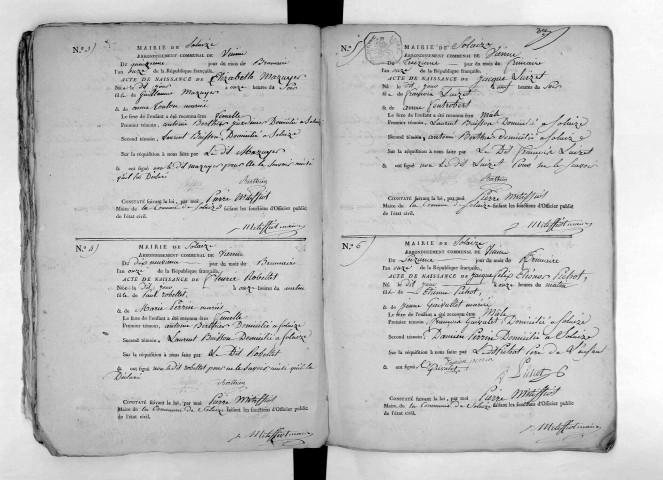 N.° 3
MAIRIE DE Solaize
ARRONDISSEMENT COMMUNAL DE Vienne
Du jour du mois de Brumaire
l'an onze de la République française.
ACTE DE NAISSANCE DE Elizabeth Mazuyer
Né le dit jour à onze heures du Soir
fil de Guillaume Mazuyer
& de anne mariés
Le sexe de l'enfant a été reconnu être femelle
Premier témoin, antoine Berthier Domicilié a Solaize
Second témoin, Laurent Buisson, Domicilié a Solaize
Sur la réquisition à nous faite par Le dit Mazuyer
& ont signé non le dit mazuyer pour ne le Savoir
Berthier
CONSTATÉ suivant la loi, par moi Pierre Metiffiot
Maire de la Commune de Solaize faisant les fonctions d'Officier public
de l'état civil.
Metiffiot maire
N.° 4
MAIRIE DE Solaize
ARRONDISSEMENT COMMUNAL DE Vienne
Du dix neuvieme jour du mois de Brumaire
l'an onze de la République française.
ACTE DE NAISSANCE DE Pierre Robellet
Né le dit jour à onze heures du matin
fil de Paul robellet
& de Marie Perrin mariés
Le sexe de l'enfant a été reconnu être
Premier témoin, antoine Berthier Domicilié a Solaize
Second témoin, Laurent Buisson Domicilié a Solaize
Sur la réquisition à nous faite par Le Dit Robellet
& ont signé non le dit robellet pour ne le Savoir
Berthier
CONSTATÉ suivant la loi, par moi Pierre Metiffiot
Maire de la Commune de Solaize faisant les fonctions d'Officier public
de l'état civil.
Metiffiot maire
N.° 5
MAIRIE DE Solaize
ARRONDISSEMENT COMMUNAL DE Vienne
Du treizieme jour du mois de frimaire
l'an onze de la République française.
ACTE DE NAISSANCE DE Jacque Luizet
Né le dit jour à neuf heures du Soir
fil de françois Luizet
& de anne
Le sexe de l'enfant a été reconnu être Mâle
Premier témoin, Laurent Buisson Domicilié a Solaize
Second témoin, antoine Berthier domicilié a Solaize
Sur la réquisition à nous faite par Le Dit françois Luizet
& ont signé non le Dit Luizet Pour ne le Savoir
Berthier
CONSTATÉ suivant la loi, par moi Pierre Metiffiot
Maire de la Commune de Solaize faisant les fonctions d'Officier public
de l'état civil.
Metiffiot maire
N.° 6
MAIRIE DE Solaize
ARRONDISSEMENT COMMUNAL DE Vienne
Du jour du mois de frimaire
l'an onze de la République française.
ACTE DE NAISSANCE DE
Né le dit jour à onze heures du matin
fil de Etienne
& de mariés
Le sexe de l'enfant a été reconnu être Mâle
Premier témoin, françois Domicilié a Solaize
Second témoin, Damien Perrin Domicilié a Solaize
Sur la réquisition à nous faite par Père de L'enfant
& ont signé
CONSTATÉ suivant la loi, par moi Pierre Metiffiot
Maire de la Commune de Solaize faisant les fonctions d'Officier public
de l'état civil.
Metiffiot maire